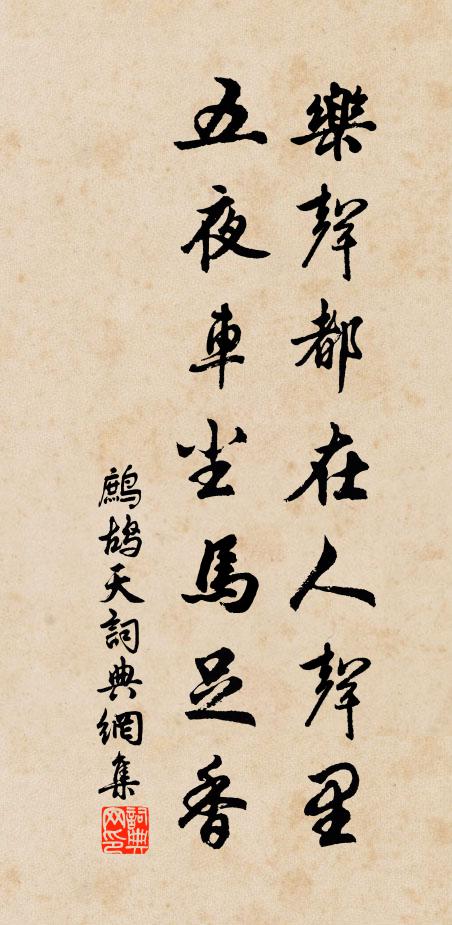 樂聲都在人聲里
五夜車尘馬足香
鷓鴣天詞典網集
詞典网印